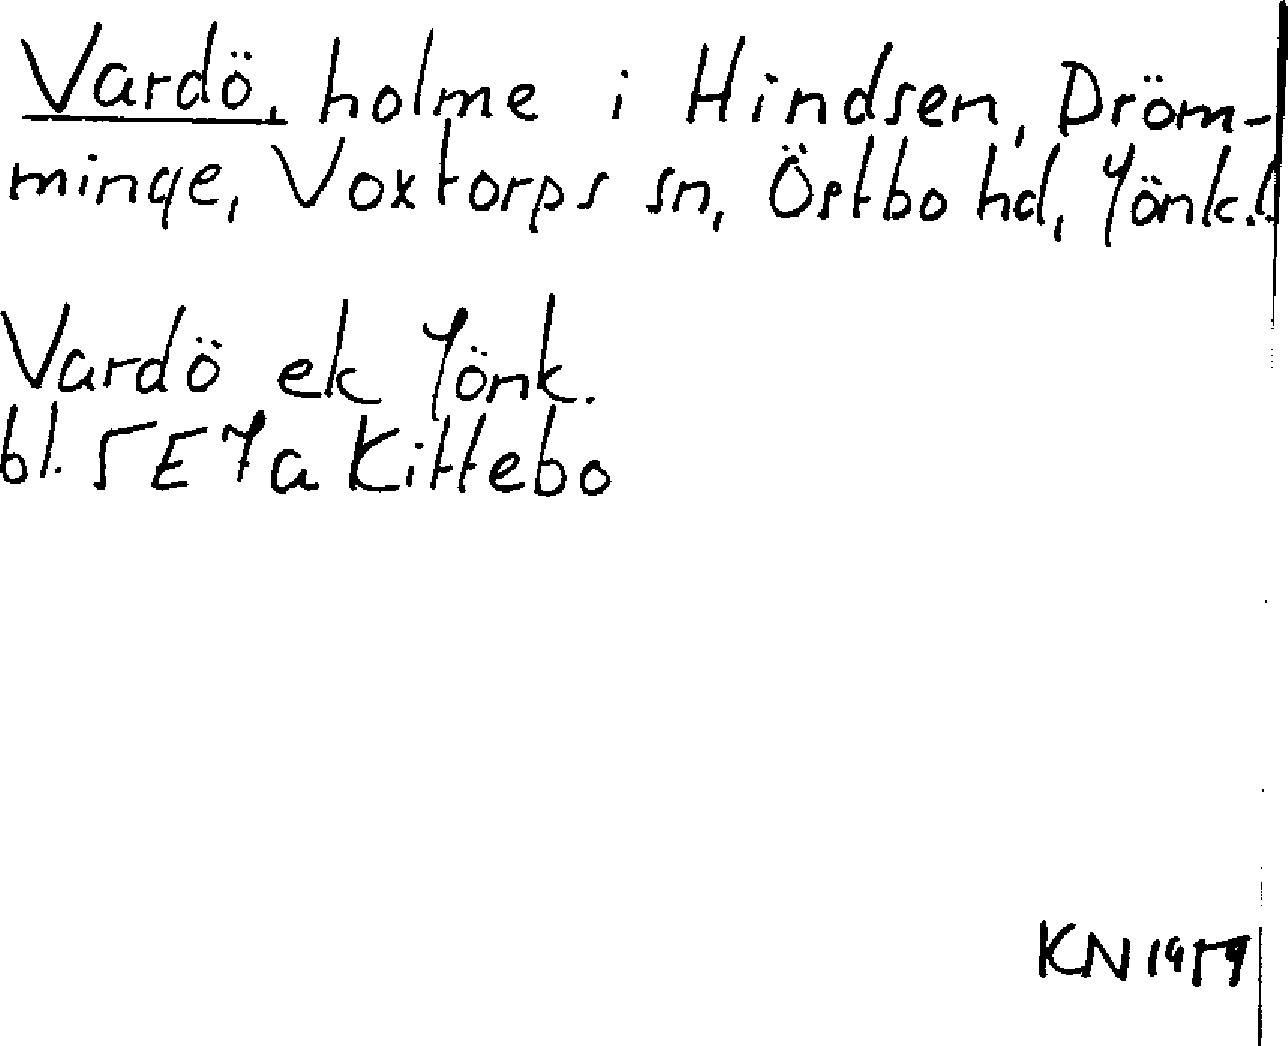 Vardö, holme i Hindsen, Dröm-
minge, Voxtorps sn, Östbo hd, Jönk.l
Vardö ek Jönk.
bl. 5E7a Kittebo
KN 1959